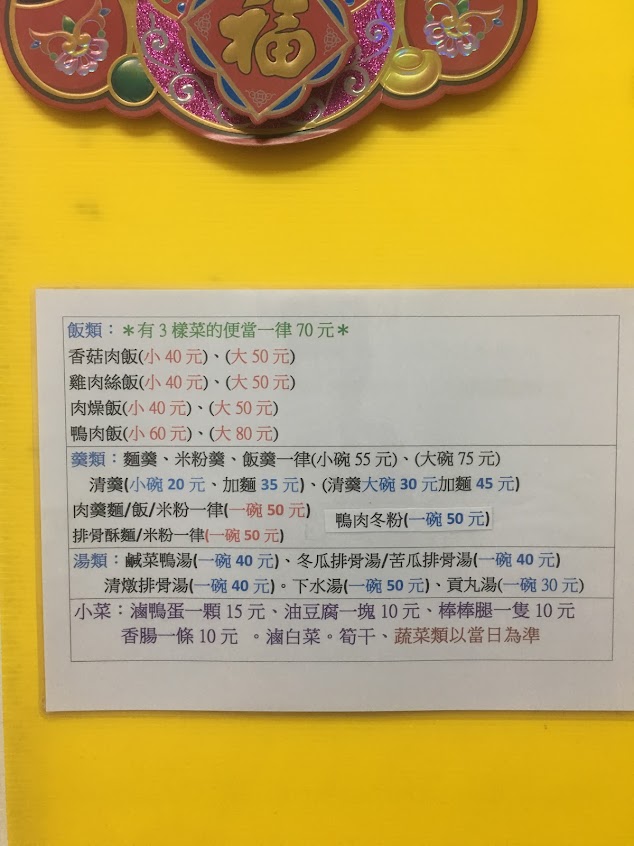 福
飯類：＊有 3 樣菜的便當一律 70 元＊
香菇肉飯(小 40 元)、(大 50 元)
雞肉絲飯(小 40 元)、(大 50 元)
肉燥飯(小 40 元)、(大 50 元)
鴨肉飯(小 60 元)、(大 80 元)
羹類：麵羹、米粉羹、飯羹一律(小碗 55 元)、(大碗 75 元)
清羹(小碗 20 元、加麵 35 元)、(清羹大碗 30 元加麵 45 元)
肉羹麵/飯/米粉一律(一碗 50 元)
鴨肉冬粉(一碗 50 元)
排骨酥麵/米粉一律(一碗 50 元)
湯類：鹹菜鴨湯(一碗 40 元)、冬瓜排骨湯/苦瓜排骨湯(一碗 40 元)
清燉排骨湯(一碗 40 元)。下水湯(一碗 50 元)、貢丸湯(一碗 30 元)
小菜：滷鴨蛋一顆 15 元、油豆腐一塊 10 元、棒棒腿一隻 10 元
香腸一條 10 元 。滷白菜。筍干、蔬菜類以當日為準